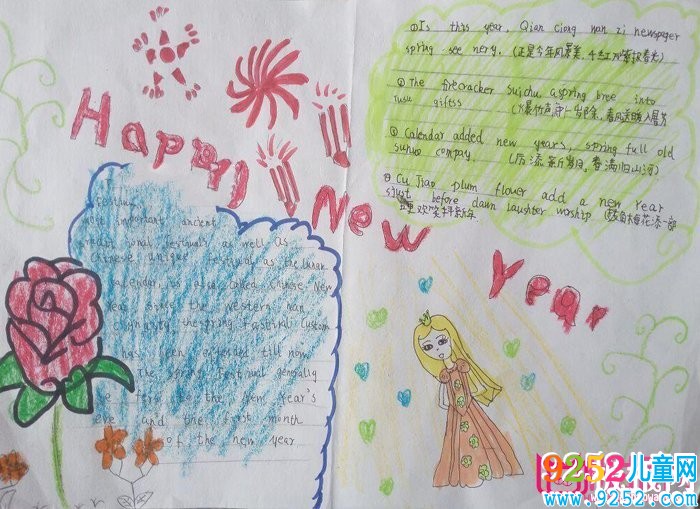 Happy New Year
①Is this year, Qian Ciong wan zi newspaper
spring see nery. (正是今年风景美,千红万紫报春光)
②The firecracker suichu, aspring bree into
tusu giftss (火爆竹声
③Calendar added new years, spring full old
sunuo compay. (历添新岁月,春满旧山河)
④Cu Jiao plum flower add a new year
just before dawn laughter worship
欢笑拜新年
festival
most important ancient
traditional festivals as well as
Chinese unique festival as the lunar
calendar, is also called Chinese New
Year and the western
the Spring Festival custom
has been till now
The Spring Festival generally
refers to the New Year's
eve and the first month
of the new year
9252儿童网
www.9252.com